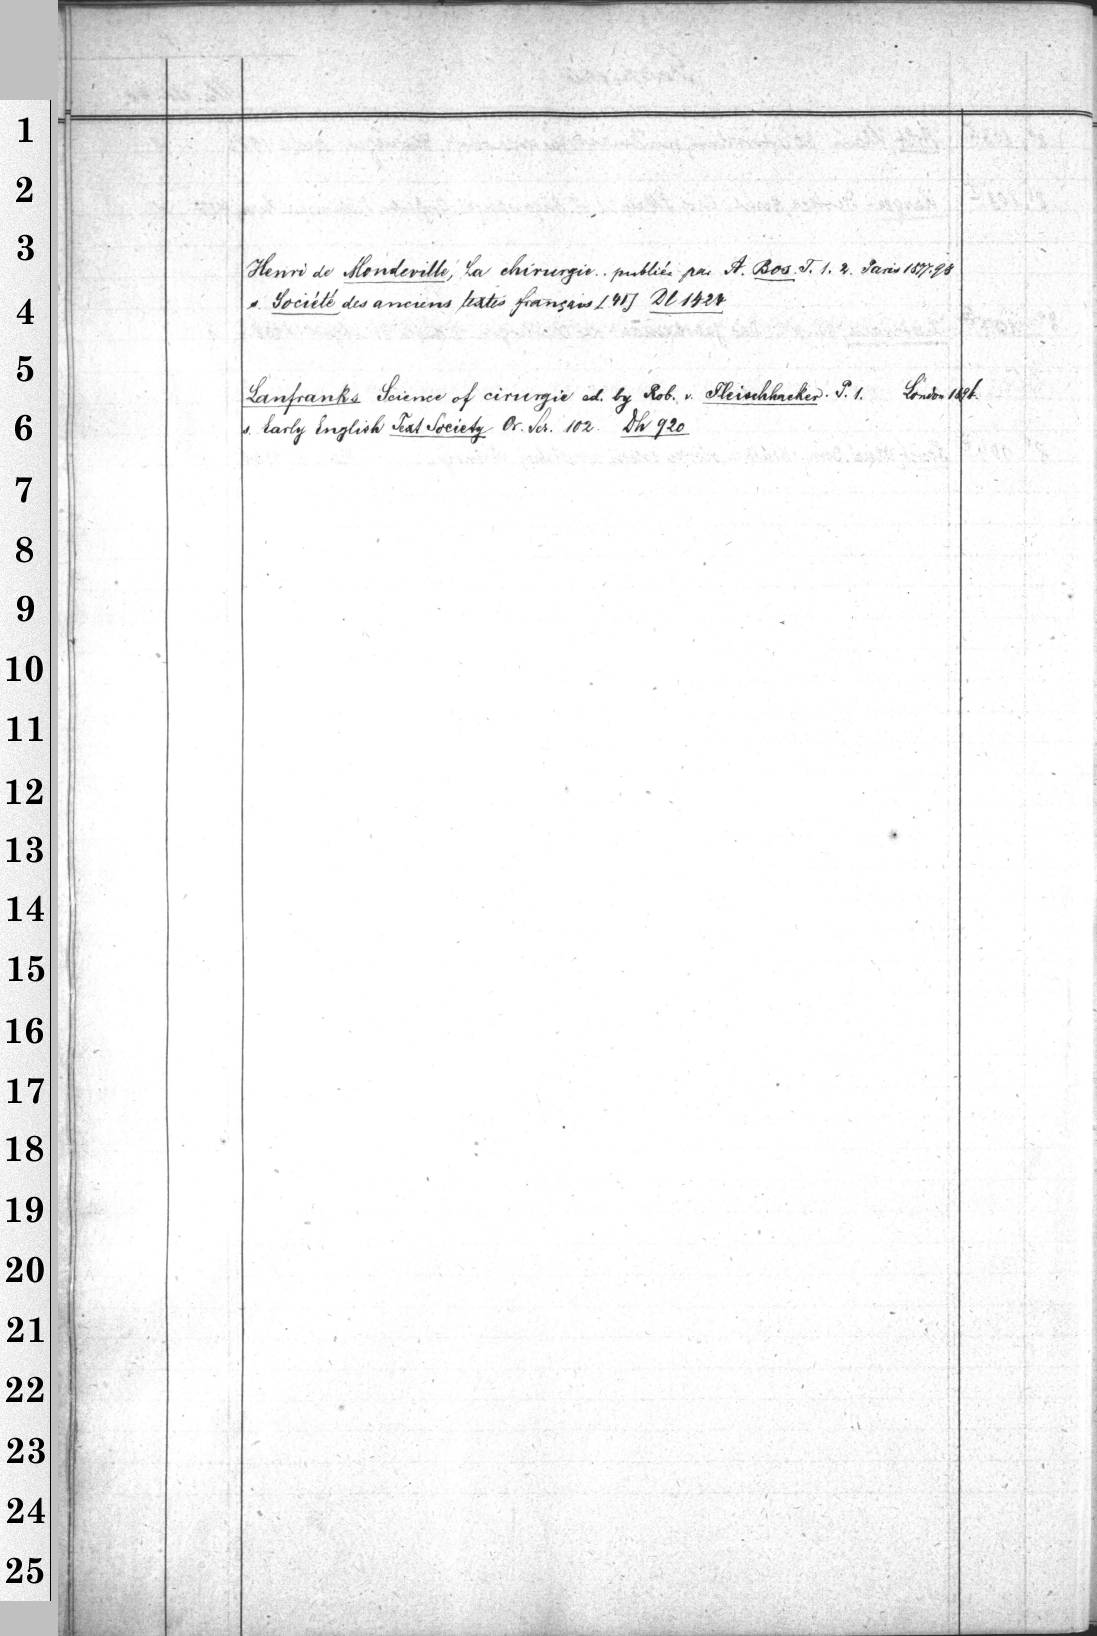 1
2
3
Henri de Mondeville, La chirurgie.. publiée par A. Bos. T. 1. 2. Paris 1877-98
4
s. Société des anciens textes français [41] Dl 1424
5
Lanfrank's Science of cirurgie ed. by Rob. v. Fleischhacker. P. 1. London 1894.
6
s. Early English Text Society Or. Ser. 102. Dh 920
7
8
9
10
11
12
13
14
15
16
17
18
19
20
21
22
23
24
25